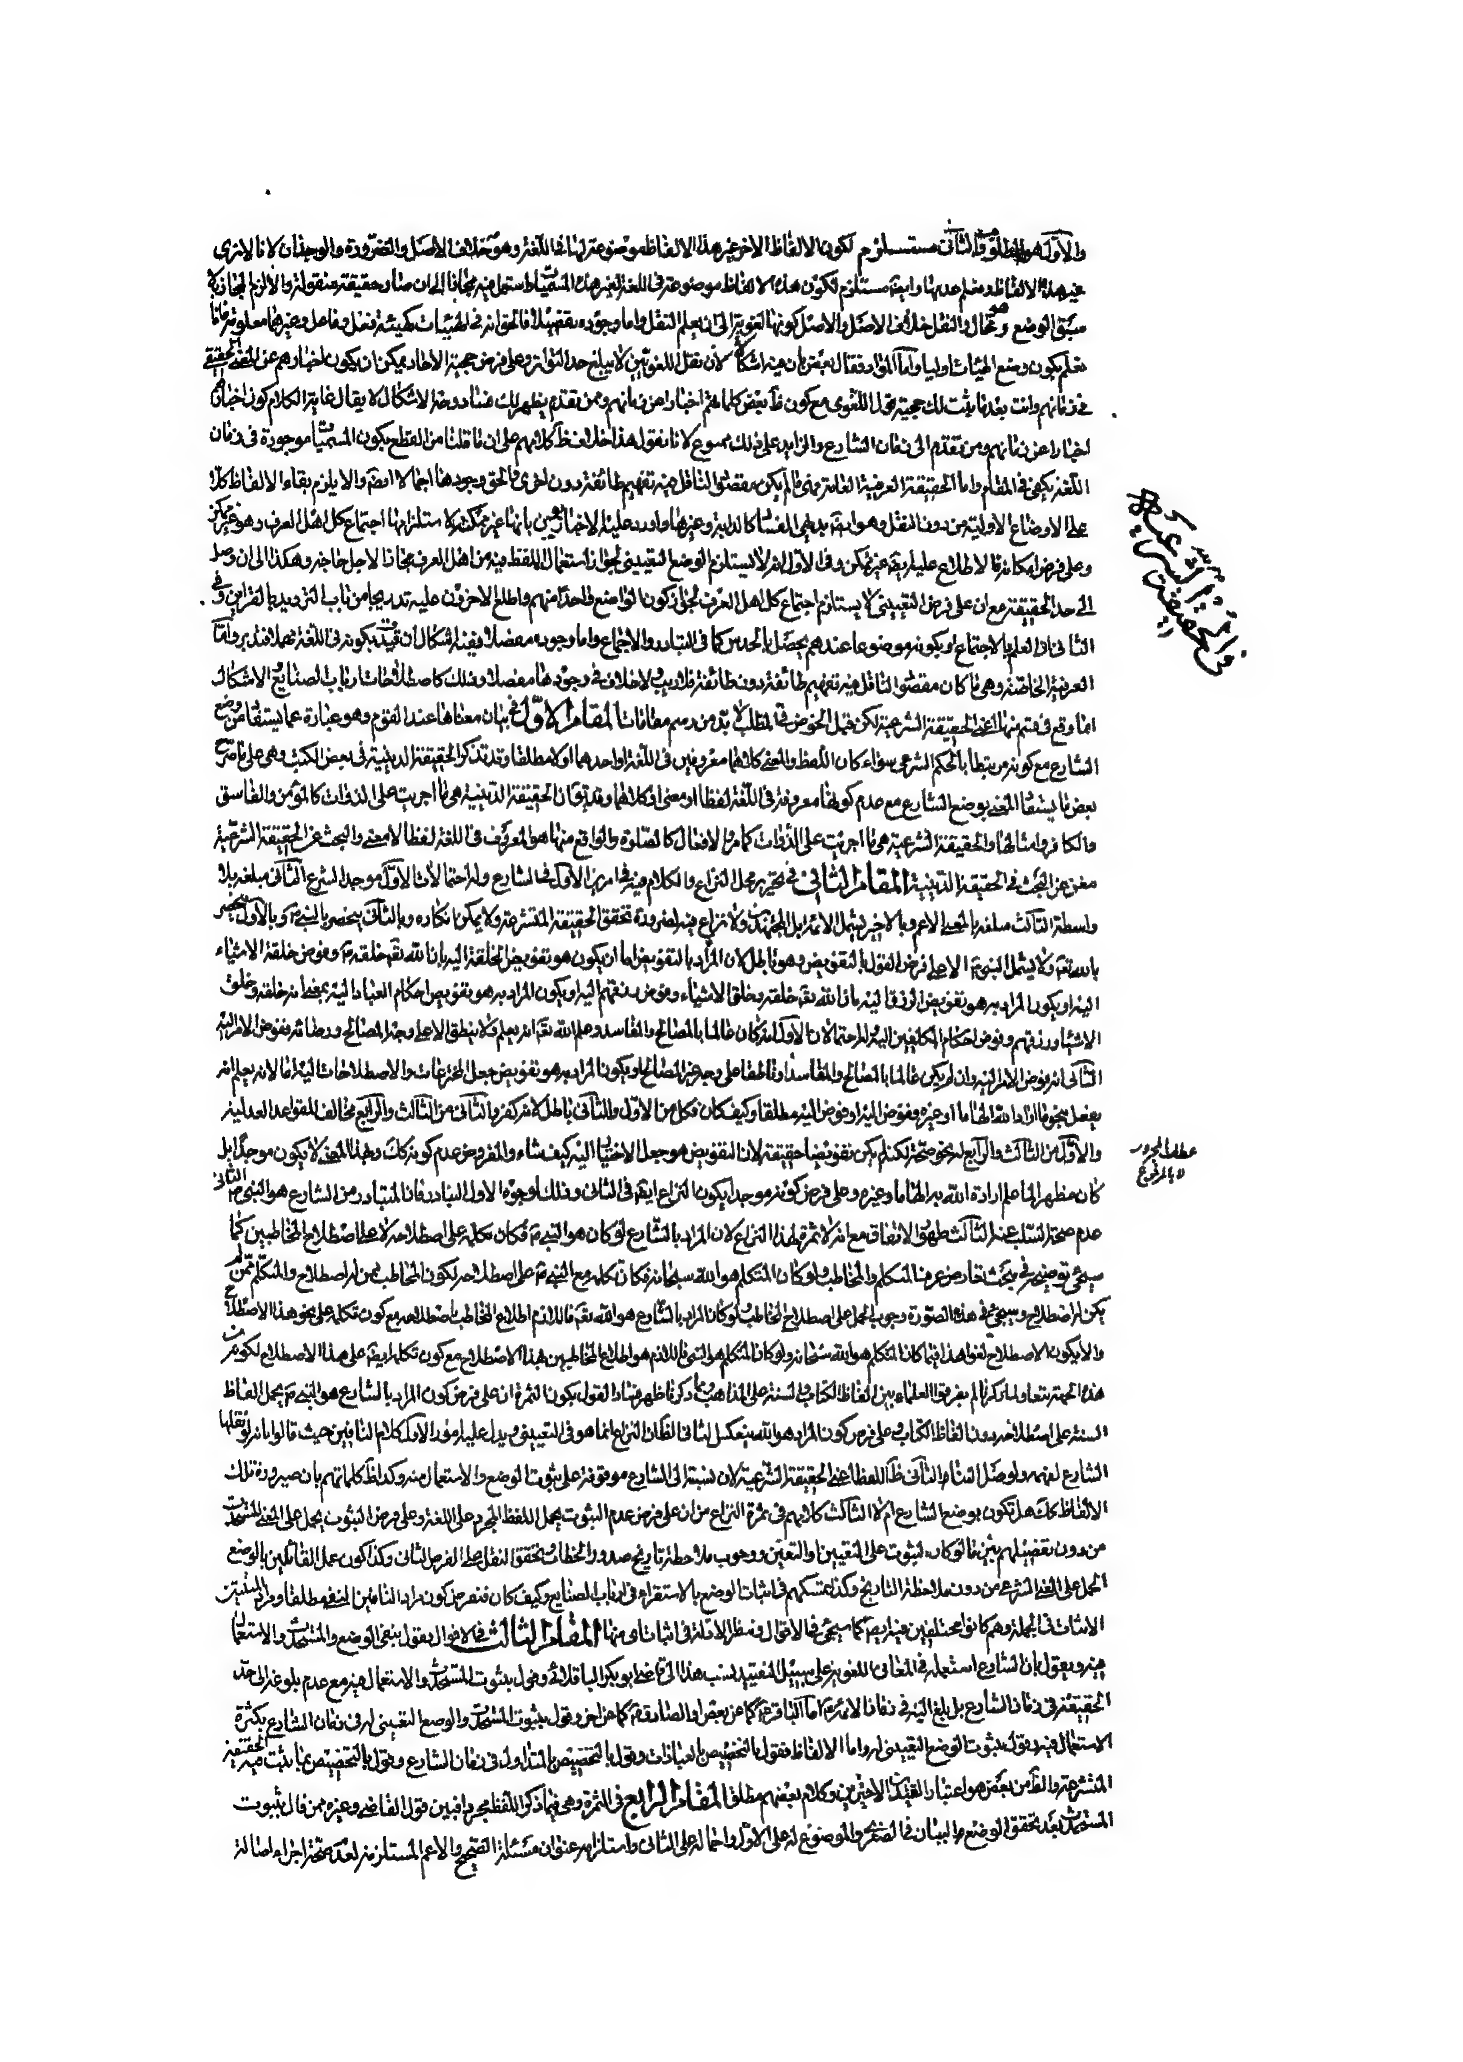 والأول هو المطلوب والثانى مستلزم لكون الالفاظ الاخر غير هذا الالفاظ موضوعة لها فى اللغة وهو خلاف الاصل والضرورة والوجدان لانا لا نرى
غير هذا الالفاظ وضع مستلزم لكون هذا الالفاظ موضوعة فى اللغة لغير هذا المسميات استعمل فيه مجازا الى ان صار حقيقة منقولة والا لزم المجاز بلا
سبق الوضع وهو محال والنقل خلاف الاصل والاصل كونها لغوية الى ان يعلم النقل واما وجوده تفصيلا فالحق انه فى الهيئات كهيئة فعل وفاعل وغيرهما معلوم فانا
نعلم بكون وضع الهيئات اوليا واما المواد فقال بعض بان فيه اشكالا لان نقل اللغويين لا يبلغ حد التواتر وعلى فرض حجية الاحاد يمكن ان يكون اخبارهم عن المعنى الحقيقى
فى زمانهم وانت بعد ما يثبت لك حجية قول اللغوى مع كون ظ بعض كلماتهم اخبارا عن زمانهم ومن تقدم يظهر لك فساد وجه الاشكال لا يقال غاية الكلام كون اخبارهم
اخبارا عن زمانهم ومن تقدم الى زمان الشارع والزايد على ذلك ممنوع لانا نقول هذا خلاف ظ كلامهم على ان ما قلنا من القطع بكون المسميات موجودة فى زمان
اللغة يكفى فى المقام واما الحقيقة العرفية العامة وهى ما لم يكن مقصود الناقل فيه تفهيم طائفة دون اخرى فالحق وجودها اجمالا ايضا والا يلزم بقاء الالفاظ كلا
على الاوضاع الاولية من دون النقل وهو ايضا بديهى الفساد كالدابة وغيرها واورد عليه الاخباريين بانها غير ممكنة لاستلزامها اجتماع كل اهل العرف وهو غير ممكن
وعلى فرض امكانه فالاطلاع عليه ايضا غير ممكن وفى الاول انه لا يستلزم الوضع التعيينى لجواز استعمال اللفظ فيه من اهل العرف مجازا لاجل حاجة وهكذا الى ان وصل
الى حد الحقيقة مع ان على فرض التعيينى لا يستلزم اجتماع كل اهل العرف لجواز كون الواضع واحدا منهم واطلع الاخرون عليه تدريجا من باب الترديد بالقراين وفى
الثانى ان العلم بالاجتماع او بكونه موضوعا عندهم يحصل بالحدس كما فى التبادر والاجماع واما وجوده مفصلا ففيه اشكال
العرفية الخاصة وهى ما كان مقصود الناقل فيه تفهيم طائفة دون طائفة فلا ريب ولا خلاف فى وجودها مفصلا وذلك كاصطلاحات ارباب الصنايع الاشكال
انما وقع فى قسم منها اعنى الحقيقة الشرعية لكن قبل الخوض فى المطلب لا بد من رسم مقامات المقام الاول فى بيان معناها عند القوم وهو عبارة عما يستفاد من وضع
الشارع مع كونه مرتبطا بالحكم الشرعى سواء كان اللفظ والمعنى كلاهما معروفين فى اللغة او احدهما او لا مطلقا وقد تذكر الحقيقة الدينية فى بعض الكتب وهى على ما صرح
بعض ما يستفاد المعنى بوضع الشارع مع عدم كونها معروفة فى اللغة لفظا او معنى او كلاهما وقد يقال الحقيقة الدينية هى ما اجريت على الذوات كالمؤمن والفاسق
والكافر وامثالها والحقيقة الشرعية هى ما اجريت على الذوات كما مر والافعال كالصلوة والواقع منها هو المعروف فى اللغة لفظا لا معنى والبحث عن الحقيقة الشرعية
مغن عن البحث فى الحقيقة الدينية المقام الثانى فى تحرير محل النزاع والكلام فيه فى امرين الاول فى الشارع وله احتمالات الاول موجد الشرع الثانى مبلغه بلا
واسطة الثالث مبلغه بالمعنى الاعم وبالاخير يشمل الائمة بل المجتهدين ولا نزاع فيه لضرورة تحقق الحقيقة المتشرعة ولا يمكن انكاره وبالثانى ينحصر بالنبى ص وبالاول ينحصر
بالله تعالى ولا يشمل النبى ص الا على فرض القول بالتفويض وهو باطل لان المراد بالتفويض اما ان يكون هو تفويض الخلقة اليه بان الله تعالى خلقه ص وفوض خلقة الاشياء
اليه او يكون المراد به هو تفويض الرزق اليه بان الله تعالى خلقه وخلق الاشياء وفوض رزقهم اليه او يكون المراد به هو تفويض احكام العباد اليه بمعنى انه خلقه وخلق
الاشياء ورزقهم وفوض احكام المكلفين اليه وله احتمالان الاول انه كان عالما بالمصالح والمفاسد وعلم الله تعالى انه يعلم ولا ينطق الا على وجه المصالح ورضائه ففوض الامر اليه
الثانى انه فوض الامر اليه وان لم يكن عالما بالمصالح والمفاسد او ناطقا على وجه غير المصالح او يكون المراد به هو تفويض جعل المخترعات والاصطلاحات اليه اما لانه يعلم انه
يفعل بنحو ما اراد الله الهاما او غيره وفوض اليه او فوض اليه مطلقا وكيف كان فكل من الاول والثانى باطل لانه كفر والثانى من الثالث والرابع مخالف للقواعد العدلية
والاول من الثالث والرابع له نحو صحة لكنه لم يكن تفويضا حقيقة لان التفويض هو جعل الاختيار اليه كيف شاء والمفروض عدم كونه كك وبهذا المعنى لا يكون موجدا بل
كان مظهرا لما علم ارادة الله به الهاما وغيره وعلى فرض كونه موجدا يكون النزاع ايضا فى الثانى وذلك لوجوه الاول التبادر فان المتبادر من الشارع هو النبى ص الثانى
عدم صحة السلب عنه الثالث ظهور الاتفاق مع انه لا ثمرة لهذا النزاع لان المراد بالشارع لو كان هو النبى ص فكان تكلمه على اصطلاحه لا على اصطلاح المخاطبين كما
سيجئ توضيحه فى مبحث تعارض عرف المتكلم والمخاطب ولو كان المتكلم هو الله سبحانه فكان تكلمه مع النبى ص على اصطلاحه لكون المخاطب ممن له اصطلاح والمتكلم ممن لم
يكن له اصطلاح وسيجئ فى هذه الصورة وجوب الحمل على اصطلاح المخاطب ولو كان المراد بالشارع هو الله تعالى فاللازم اطلاع المخاطب باصطلاحه مع كون تكلمه على نحو هذا الاصطلاح
والا يكون الاصطلاح لغوا هذا فيما كان المتكلم هو الله سبحانه ولو كان المتكلم هو النبى فاللازم هو اطلاع المخاطبين بهذا الاصطلاح مع كون تكلمه ايضا على هذا الاصطلاح لكونه
هذه الجهة متبعا ولما ذكرنا لم يفرقوا العلماء بين الفاظ الكتاب والسنة على المذاهب وبما ذكرنا ظهر فساد القول بكون الثمرة ان على فرض كون المراد بالشارع هو النبى ص يحمل الفاظ
السنة على اصطلاحه دون الفاظ الكتاب وعلى فرض كون المراد هو الله ينعكس الثانى الظ ان النزاع انما هو فى التعيينى ويدل عليه امور الاول كلام النافين حيث قالوا بانه لو نقلها
الشارع لفهمه ولوصل الينا والثانى ظ اللفظ اعنى الحقيقة الشرعية لان نسبته الى الشارع موقوفة على ثبوت الوضع والاستعمال منه وكذا ظ كلماتهم بان صيرورة تلك
الالفاظ كك هل تكون بوضع الشارع ام لا الثالث كلامهم فى ثمرة النزاع من ان على فرض عدم الثبوت يحمل اللفظ المجرد على اللغة وعلى فرض الثبوت يحمل على المعنى المستحدث
من دون تفصيلهم بين ما لو كان الثبوت على التعيين او التعين ووجوب ملاحظة تاريخ صدور الخطاب وتحقق النقل على الفرض الثانى وكذا كون عمل القائلين بالوضع
الحمل على المعنى الشرعى من دون ملاحظة التاريخ وكذا تمسكهم فى اثبات الوضع بالاستقراء فى ارباب الصنايع وكيف كان فنفرض كون مراد النافين النفى مطلقا ومراد المثبتين
الاثبات فى الجملة وهم كانوا مختلفين فيه ايضا كما سيجئ فى الاقوال المقام الثالث فى الاقوال فقول بنفى الوضع والمستحدث والاستعمال
فيه وبقول بان الشارع استعمله فى المعانى اللغوية على سبيل التقييد نسب هذا الى قاضى ابو بكر الباقلانى وقول بثبوت المستحدث والاستعمال فيه مع عدم بلوغه الى حد
الحقيقة فى زمان الشارع بل بلغ اليه فى زمان الائمة اما الباقر كما عن بعض او الصادق كما عن اخر وقول بثبوت المستحدث والوضع التعينى له فى زمان الشارع بكثرة
الاستعمال فيه وقول بثبوت الوضع التعيينى له واما الالفاظ فقول بالتخصيص بالعبادات وقول بالتخصيص بالمتداول فى زمان الشارع وقول بالتخصيص بما يثبت فيه الحقيقة
المتشرعة والظ من بعض هو اعتبار القيدين الاخيرين وكلام بعضهم مطلق المقام الرابع فى الثمرة وهى فيما ذكر اللفظ مجردا فبين قول القاضى وغيره ممن قال بثبوت
المستحدث بعد تحقق الوضع والموضوع له على الاول واجماله على الثانى واستلزامه عنوان مسئلة الصحيح والاعم المستلزمة لعدم صحة اجراء اصالة
فى الحقيقة الشرعية
عطف بالمجرور
لا بالمرفوع